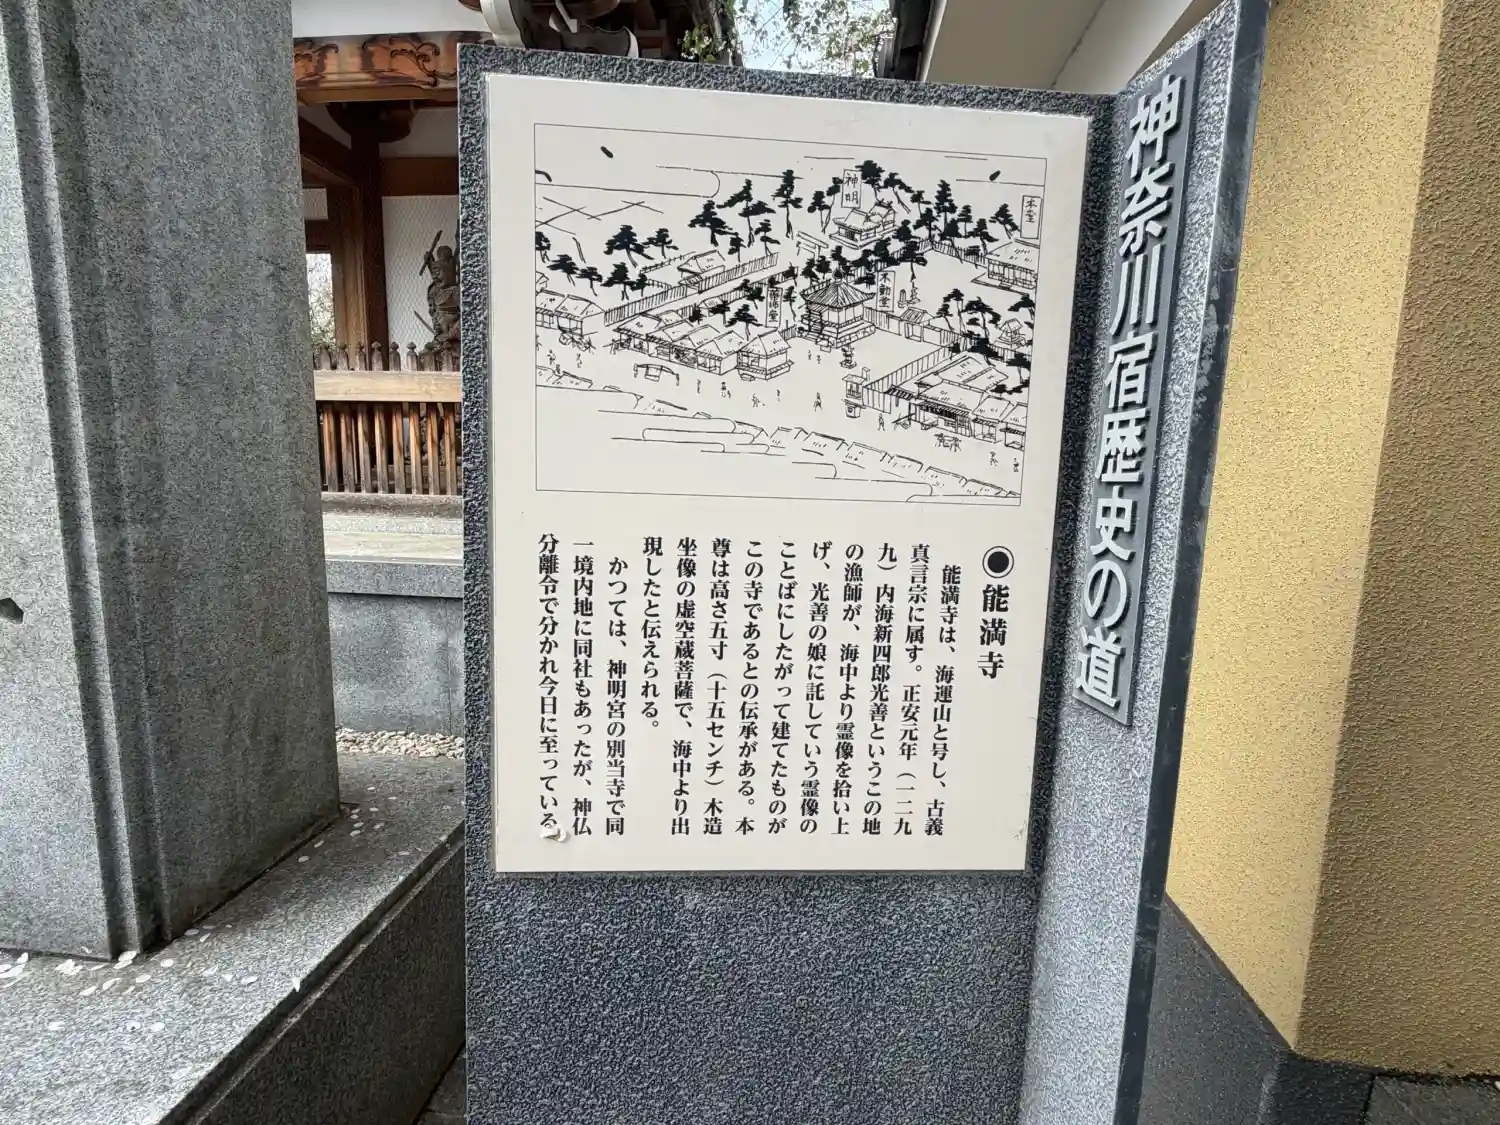 神奈川宿歴史の道
神明
本堂
不動堂
◉能満寺
能満寺は、海運山と号し、古義
真言宗に属す。正安元年（一二九
九）内海新四郎光善というこの地
の漁師が、海中より霊像を拾い上
げ、光善の娘に託していう霊像の
ことばにしたがって建てたものが
この寺であるとの伝承がある。本
尊は高さ五寸（十五センチ）木造
坐像の虚空蔵菩薩で、海中より出
現したと伝えられる。
かつては、神明宮の別当寺で同
一境内地に同社もあったが、神仏
分離令で分かれ今日に至っている